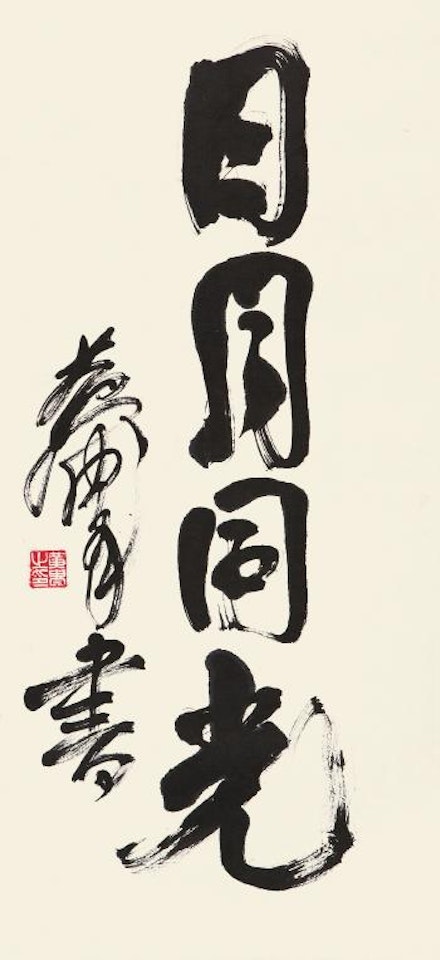 日月同光
書